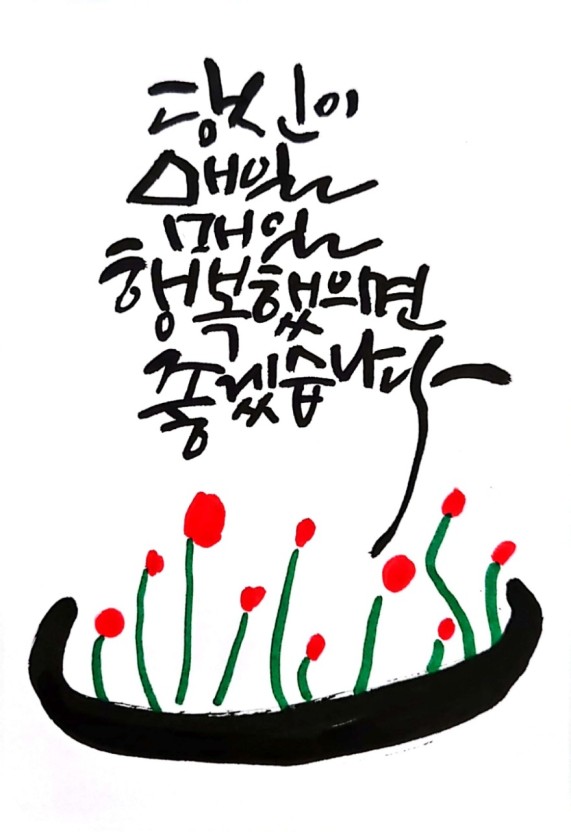 당신이
매일
매일
행복했으면
좋겠습니다